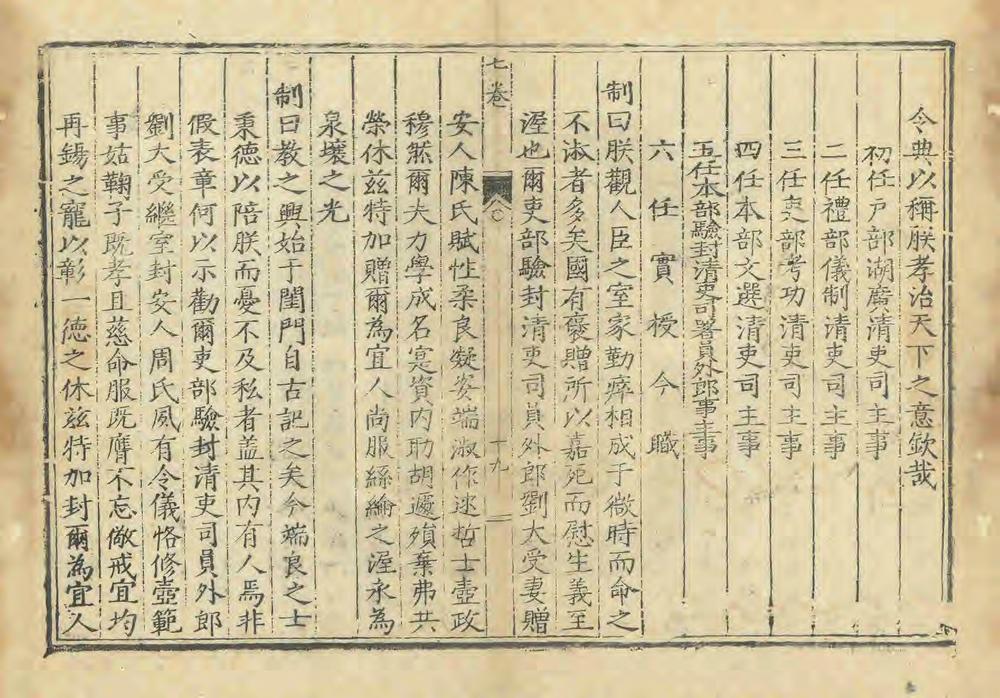 令典以稱朕孝治天下之意欽哉
初任戶部湖廣清吏司主事
二任禮部儀制清吏司主事
三任吏部考功清吏司主事
四任本部文選清吏司主事
五任本部驗封清吏司署員外郎事主事
六任實授今職
制曰朕觀人臣之室家勤瘁相成于微時而命之
不淑者多矣國有褒贈所以嘉死而慰生義至
渥也爾吏部驗封清吏司員外郎劉大受妻贈
七卷
十九
安人陳氏賦性柔良凝姿端淑作逑哲士壼政
穆然爾夫力學成名寔資內助胡遽殞棄弗共
榮休茲特加贈爾為宜人尚服絲綸之渥永為
泉壤之光
制曰教之興始于閨門自古記之矣今端良之士
秉德以陪朕而憂不及私者盖其內有人焉非
假表章何以示勸爾吏部驗封清吏司員外郎
劉大受繼室封安人周氏夙有令儀恪修壼範
事姑鞠子既孝且慈命服既膺不忘儆戒宜均
再錫之寵以彰一德之休茲特加封爾為宜人